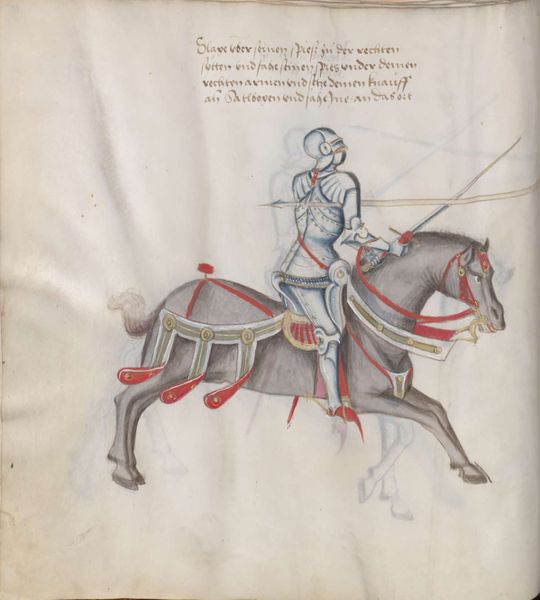 Slahe vber seinen spiesz zu der rechten
seitten vnd fahe seinen spies vnder deinen
rechten armen vnd setz deinen knauff
an Satlbogen vnd fahe Jne an das ort